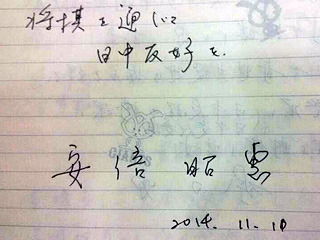 将棋を通じて
日中友好を.
安倍昭恵
2014. 11. 10